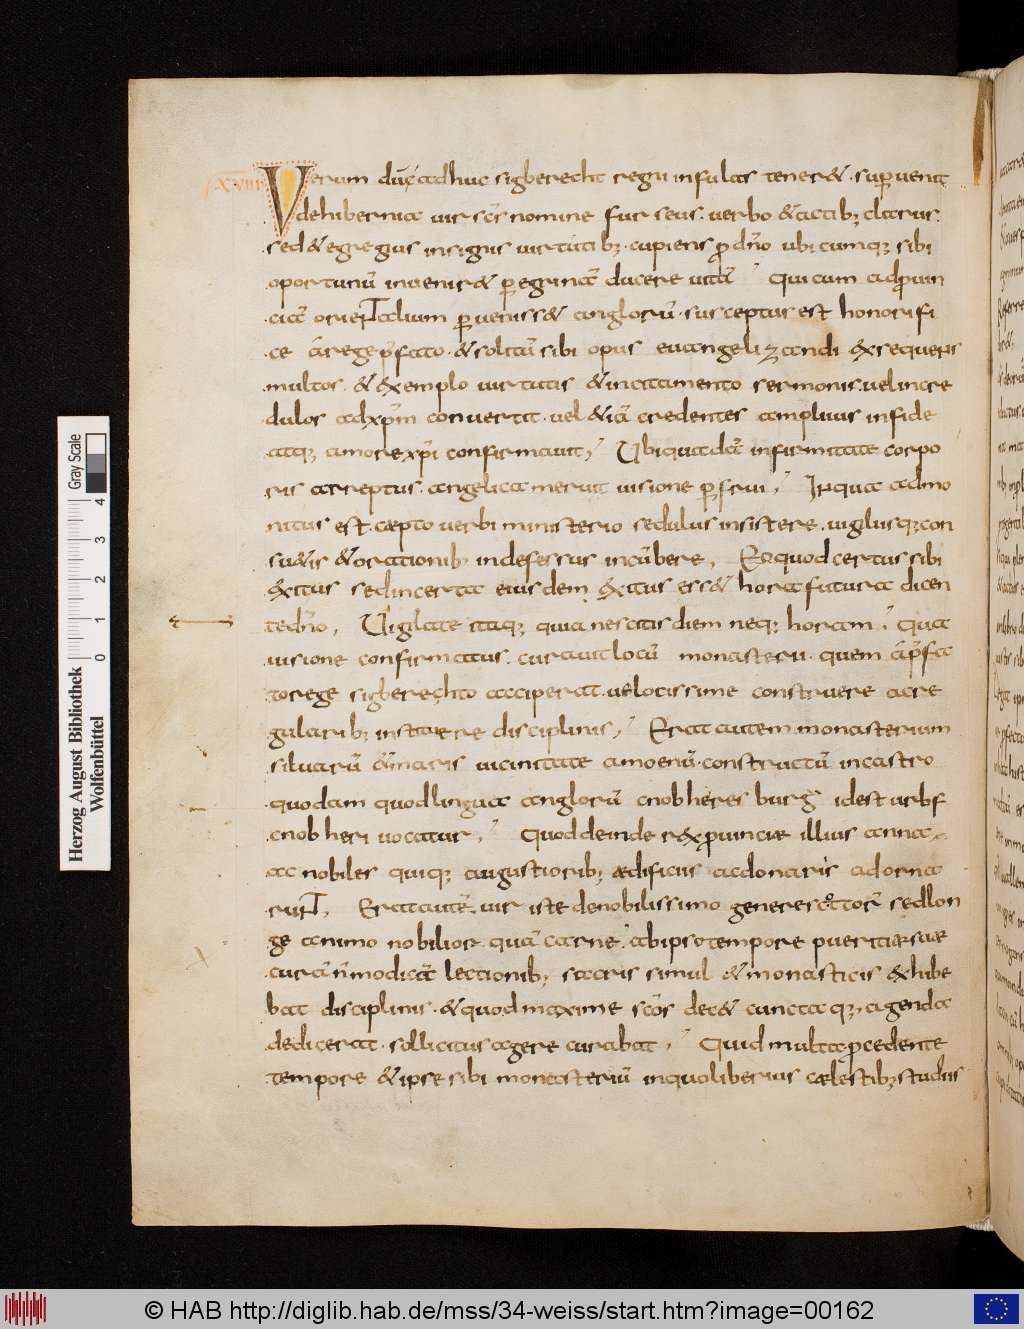 XVIIII Verum dũ adhuc sigberecht regni infulas tener&. superuenit
dehibernia uir scs nomine furseus. uerbo &actib; clarus.
sed&egregius insignis uirtutib; cupiens ꝓ dño ubicumq; sibi
oportunũ inuenir& peregrinã ducere uitã Qui cum adprouin
ciã orientalium peruenisset anglorũ. susceptus est honorifi
ce árege pfato. &solitũ sibi opus euangelizandi exsequens
multos. &exemplo uirtutis &incitamento sermonis. uelincre
dulos adxpm conuertit. uel &iã credentes amplius infide
atq; amore xpi confirmauit, Ubi quadã infirmitate corpo
ris arreptus. angelica meruit uisione perfrui, Inqua admo
nitus est. cæpto uerbi ministerio sedulus insistere. uigiliisq; con
su&is &orationib; indefessus incũbere, Eo quod certus sibi
exitus sed incerta eiusdem exitus ess& hora futura dicen
tedño, Uigilate itaq; quia nescitis diem neq; horam, Qua
uisione confirmatus. curauit locũ monasterii. quem ápfa
torege sigberechto acciperat. uelocissime construere acre
gularib; instituere disciplinis, Erat autem monasterium
siluarũ &maris uicinitate amoenũ. constructũ incastro
quodam quodlingua anglorũ cnobheres burg idest urbs
cnobheri uocatur, Quod deinde rex prouinciæ illius anna
ac nobiles quiq; augustiorib; ædificiis acdonariis adorna
runt, Erat autẽ uir iste denobilissimo genere scottorũ sedlon
ge animo nobilior quã carne. abipso tempore pueritiæ suæ
curã ñ modicã lectionib; sacris simul &monasticis exhibe
bat disciplinis. &quod maxime scos dec& cuncta q; agenda
dedicerat. sollicitus agere curabat, Quid multa procedente
tempore &ipse sibi monasteriũ inquo liberius cælestib; studiis
Herzog August Bibliothek
Wolfenbüttel
Gray Scale
0 1 2 3 4
© HAB http://diglib.hab.de/mss/34-weiss/start.htm?image=00162